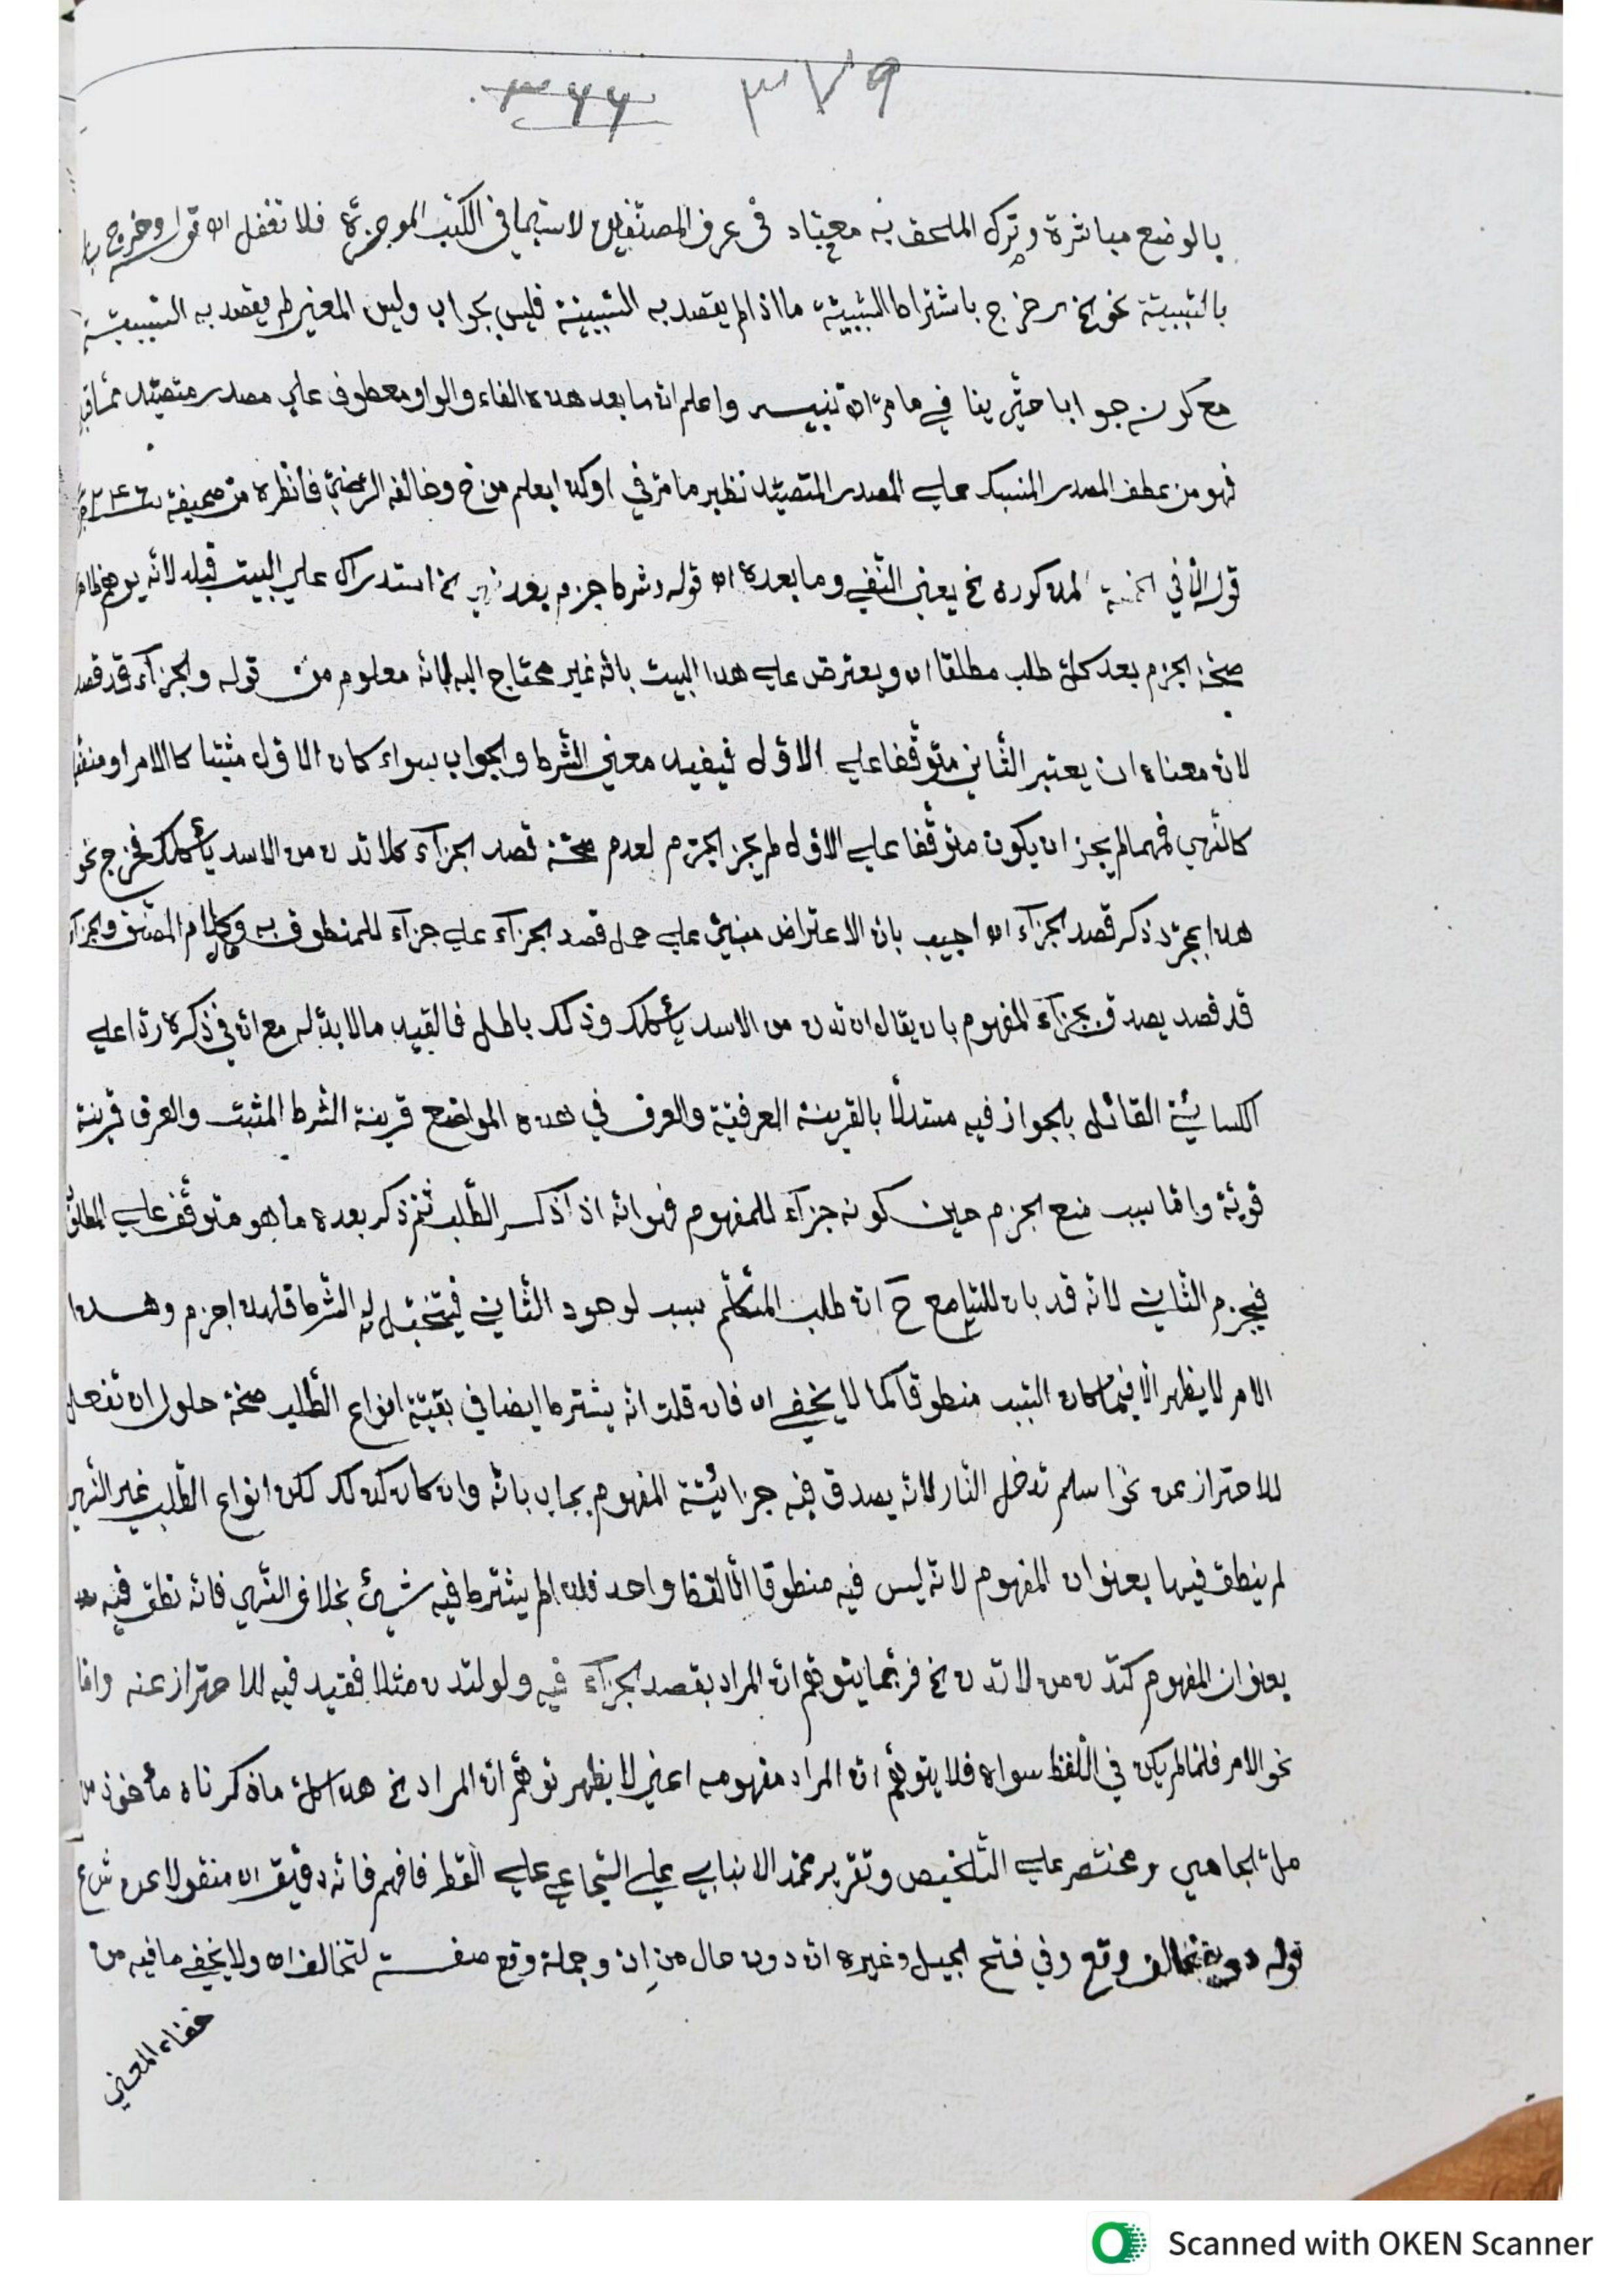 ٣٧٩ ٣٦٦
بالوضع مباشرة وترك الملحق به معتاد في عرف المصنّفين لاسيّما في الكتب الموجزة فلا تغفل اه قوله وخروج
بالسّببيّة نحو الخ خرج باشتراط السّببيّة ما اذا لم يقصد به السّببيّة فليس بجواب وليس المعنى لم يقصد به السّببيّة
مع كونه جوابا حتّى ينافي ما مرّ اه تنبيه واعلم انّ ما بعد هذه الفاء والواو معطوف علي مصدر متصيّد ممّا قبل
فهو من عطف المصدر المنسبك علي المصدر المتصيّد نظير ما مرّ في او كذا يعلم من خ وخالفه الرّضيّ فانظره من صحيفة
قوله الّا في المذكورة نخ يعني النّفي وما بعده اه قوله وشرط جزم بعد نهي نخ استدراك علي البيت قبله لانّه يوهم ظاهر
صحّة الجزم بعد كلّ طلب مطلقا اه ويعترض علي هذا البيت بانّه غير محتاج اليه لانّه معلوم من قوله والجزآء قد قصد
لانّ معناه ان يعتبر الثّاني متوقّفا علي الاوّل فيفيد معني الشّرط والجواب سواء كان الاوّل مثبتا كالامر او منفيّا
كالنّهي فمهما لم يجز ان يكون متوقّفا علي الاوّل لم يجز الجزم لعدم صحّة قصد الجزآء كلا تدن من الاسد يأكلك فخرج نحو
هذا بمجرّد ذكر قصد الجزآء اه اجيب بانّ الاعتراض مبنيّ علي حمل قصد الجزآء علي جزآء للمنطوق به وكلام المصنّف والجزآء
قد قصد يصدق بجزآء المفهوم بان يقال ان تدن من الاسد يأكلك وذلك باطل فالقيد ممّا لا بدّ له مع انّ في ذكره ردّا علي
الكسائيّ القائل بالجواز فيه مستدلّا بالقرينة العرفيّة والعرف في هذه المواضع قرينة الشرط المثبت والعرف قرينة
قويّة وامّا سبب منع الجزم حين كونه جزآء للمفهوم فهو انّه اذا ذكر الطّلب ثمّ ذكر بعده ما هو متوقّف علي المطلوب
فيجزم الثّاني لانّه قد بان للسّامع ح انّ طلب المتكلّم سبب لوجود الثّاني فيتخيّل له الشّرط فلهذا جزم وهذا
الامر لا يظهر الّا فيما كان السّبب منطوقا كما لا يخفي اه فان قلت انّه يشترط ايضا في بقيّة انواع الطّلب صحّة حلول ان تفعل
للاحتراز عن نحو اسلم تدخل النّار لانّه يصدق فيه جزائيّة المفهوم يجاب بانّه وان كان كذلك لكن انواع الطّلب غير النّهي
لم ينطق فيها بعنوان المفهوم لانّه ليس فيه منطوقا الّا لفظ واحد فلذا لم يشترط فيه شيئ بخلاف النّهي فانّه نطق فيه
بعنوان المفهوم كتدن من لا تدن نخ فربّما يتوهّم انّ المراد بقصد الجزآء فيه ولو لتدن مثلا فقيّد فيه للاحتراز عنه وامّا
نحو الامر فلمّا لم يكن في اللّفظ سواه فلا يتوهّم انّ المراد مفهومه اعني لا يظهر توهّم انّ المراد نخ هذا كلّ ما ذكرناه مأخوذ من
ملّا الجامي و مختصر علي التّلخيص وتقرير محمّد الانبابي علي السّجاعي علي القطر فافهم فانّه دقيق اه منقولا عن
قوله دون تخالف وقع وفي فتح الجميل وغيره انّ دون حال من ان وجملة وقع صفة لتخالف اه ولا يخفي ما فيه من
خفاء المعني
Scanned with OKEN Scanner